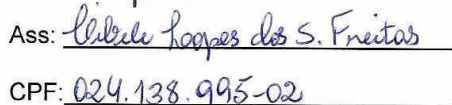 Ass: Cibele Loopes dos S. Freitas
CPF: 024.138.995-02